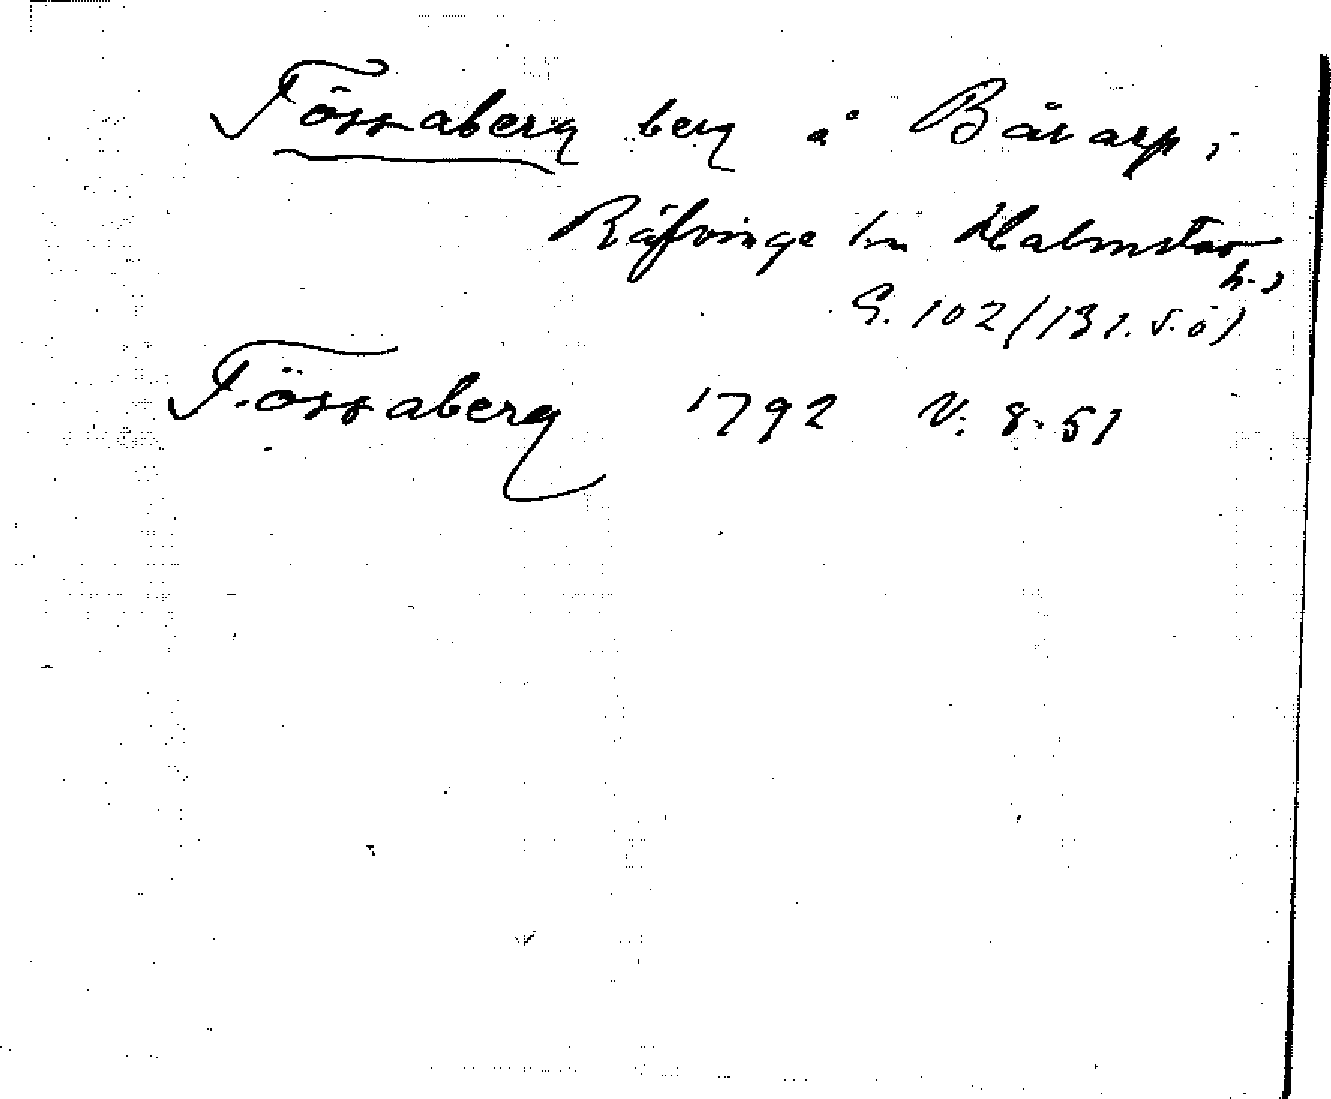 Tössaberg berg å Bårarp i
Räfvinge sn Halmstad
h.s
G. 102/131. s.ö)
Tössaberg 1792 V. 8. 51